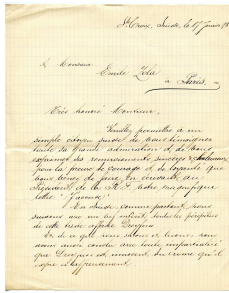 Ste Croix, Suisse, le 17 janvier 98
A Monsieur
Emile Zola
à Paris.
Très honoré Monsieur,
Veuillez permettre à un
simple citoyen suisse de vous témoigner
toute sa grande admiration et de vous
exprimer ses remerciements sincères & chaleureux
pour la preuve de courage et de loyauté que
vous venez de faire en écrivant au
Président de la R.F. votre magnifique
lettre "J'accuse"
En Suisse comme partout nous
suivons avec un vif intérêt toutes les péripéties
de cette triste affaire Dreyfus
En ce que nous savons et lisons nous
nous avons conclu en toute impartialité
que Dreyfus est innocent du crime qu'il
expie si